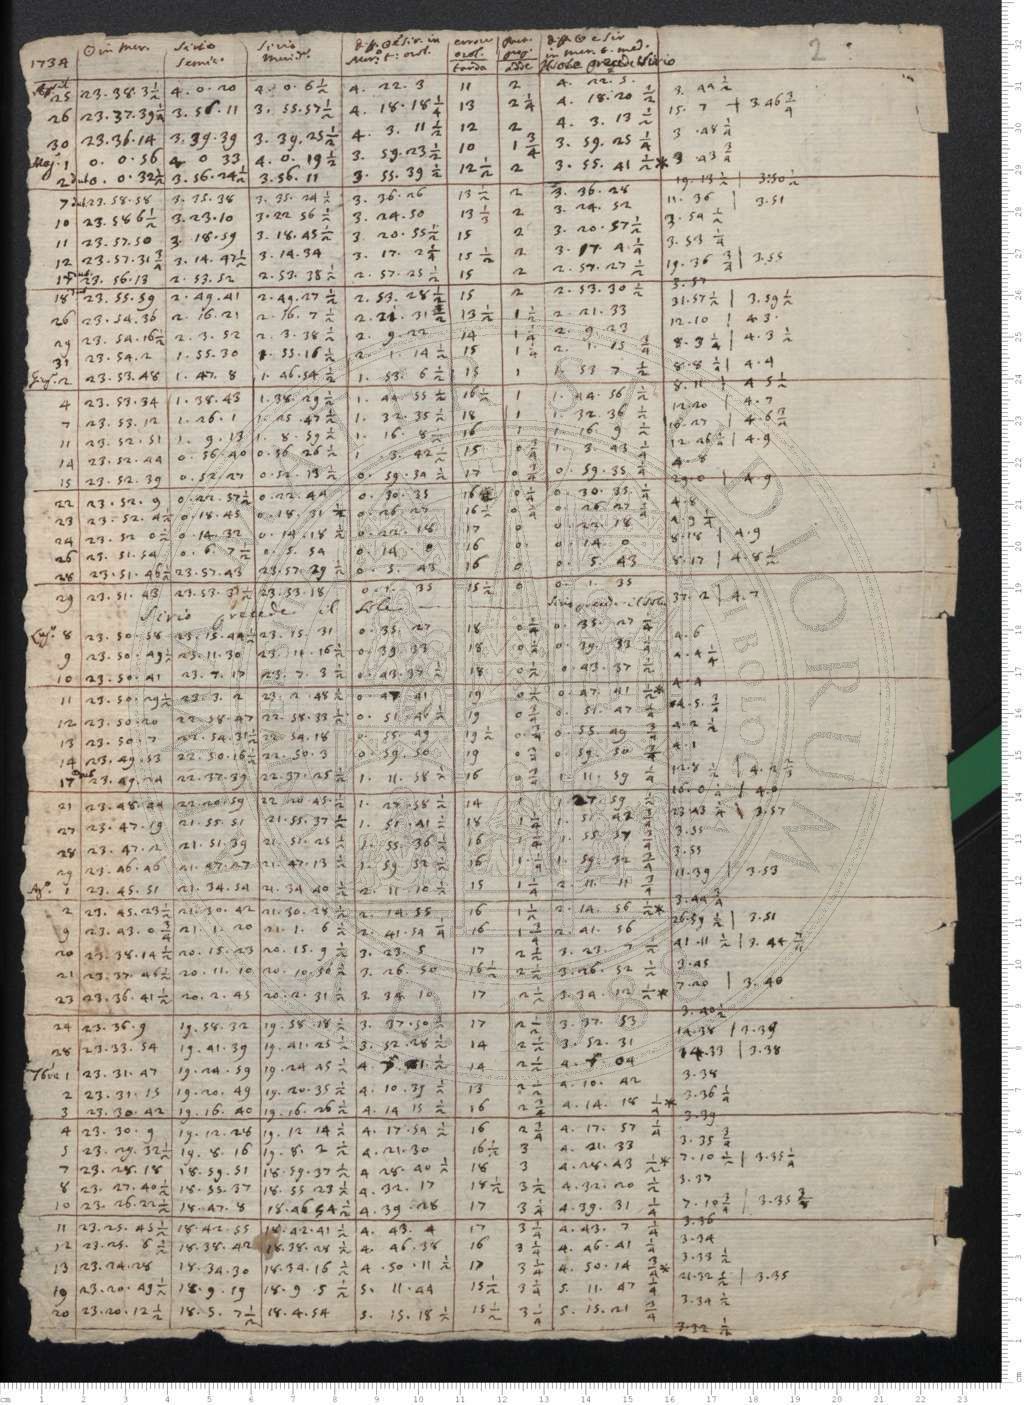 1734 ☉ in mer. Sirio semic. Sirio merid. diff. ☉ e Sir. in orol. errore orol. tarda adde diff. ☉ e Sir in mer. t. med. precede Sirio 2
25 23.38.3½ 4.0.20 4.0.6½ 4.22.3 11 2 4.22.5. 3.44½
26 23.37.39¼ 3.56.11 3.55.57½ 4.18.18¼ 13 2¼ 4.18.20½ 15.7 3.46¾
30 23.36.14 3.39.39 3.39.25½ 4.3.11½ 12 2 4.3.13½ 3.48¼
Mag. 1 0.0.56 4.0.33 4.0.19½ 3.59.23½ 10 1¾ 3.59.25¼ 3.43¾
2 0.0.32½ 3.56.24½ 3.56.11 3.55.39½ 12½ 2 3.55.41½* 19.13½ | 3.50½
7 23.58.58 3.35.38 3.35.24½ 3.36.26 13½ 2 3.36.28 11.36 | 3.51
10 23.58.6½ 3.23.10 3.22.56½ 3.24.50 13⅓ 2 3.24.52 3.54½
11 23.57.50 3.18.59 3.18.45½ 3.20.55½ 15 2 3.20.57½ 3.53¼
12 23.57.31¾ 3.14.47½ 3.14.34 3.17.2¼ 15½ 2 3.17.4¼ 19.36¾ | 3.55
17 23.56.13 2.53.52 2.53.38½ 2.57.25½ 15 2 2.57.27½ 3.57
18 23.55.59 2.49.41 2.49.27½ 2.53.28½ 15 2 2.53.30½ 31.57½ | 3.59½
26 23.54.36 2.16.21 2.16.7½ 2.21.31½ 13½ 1½ 2.21.33 12.10 | 4.3
29 23.54.16½ 2.3.52 2.3.38½ 2.9.22 14 1¼ 2.9.23 8.3¼ | 4.3½
31 23.54.2 1.55.30 1.55.16½ 2.1.14½ 15 1¼ 2.1.15¾ 8.8¼ | 4.4
2 23.53.48 1.47.8 1.46.54½ 1.53.6½ 15 1 1.53.7½ 8.11 | 4.5½
4 23.53.34 1.38.43 1.38.29½ 1.44.55½ 16½ 1 1.44.56½ 12.20 | 4.7
7 23.53.12 1.26.1 1.25.47½ 1.32.35½ 18 1 1.32.36½ 16.27 | 4.6¾
11 23.52.51 1.9.13 1.8.59½ 1.16.8½ 16 1 1.16.9½ 12.26¼ | 4.9
14 23.52.44 0.56.40 0.56.26½ 1.3.42½ 15 0¾ 1.3.43¼ 4.8
15 23.52.39 0.52.27 0.52.13½ 0.59.34½ 17 0¾ 0.59.35¼ 29.0 | 4.9
22 23.52.9 0.22.57½ 0.22.44 0.30.35 16 0¼ 0.30.35¼ 4.8
23 23.52.4½ 0.18.45 0.18.31½ 0.26.27 16½ 0¼ 0.26.27¼ 4.9¼
24 23.52.0½ 0.14.32 0.14.18½ 0.22.18 17 0 0.22.18 8.18 | 4.9
26 23.51.54 0.6.7½ 0.5.54 0.14.0 16 0 0.14.0 8.17 | 4.8½
28 23.51.46½ 23.57.43 23.57.29½ 0.5.43 16 0 0.5.43
29 23.51.43 23.53.31½ 23.53.18 0.1.35 15½ 0 0.1.35 37.2 | 4.7
Sirio precede il Sole Sirio preced. il Sole
8 23.50.58 23.15.44½ 23.15.31 0.35.27 18 0¼ 0.35.27¼ 4.6
9 23.50.49½ 23.11.30 23.11.16½ 0.39.33 18 0½ 0.39.33½ 4.4¼
10 23.50.41 23.7.17 23.7.3½ 0.43.37½ 18 0½ 0.43.37½ 4.4
11 23.50.29½ 23.3.2 23.2.48½ 0.47.41 19 0½ 0.47.41½* 4.5¾
12 23.50.20 22.58.47 22.58.33½ 0.51.46½ 19 0¾ 0.51.47¼ 4.2½
13 23.50.7 22.54.31½ 22.54.18 0.55.49 19½ 0¾ 0.55.49¾ 4.1
14 23.49.53 22.50.16½ 22.50.3 0.59.50 19 0¾ 0.59.50¾ 12.8½ | 4.2⅔
17 23.49.24 22.37.39 22.37.25½ 1.11.58½ 16 0¾ 1.11.59¼ 16.0¼ | 4.0
21 23.48.44 22.20.59 22.20.45½ 1.27.58½ 14 1 1.27.59½ 23.43¼ | 3.57
27 23.47.19 21.55.51 21.55.37½ 1.51.41½ 18 1¼ 1.51.42¾ 3.55
28 23.47.2 21.51.39 21.51.25½ 1.55.36½ 16 1¼ 1.55.37¾ 3.55
29 23.46.46 21.47.27 21.47.13½ 1.59.32½ 16 1¼ 1.59.32¾ 11.39 | 3.53
1 23.45.51 21.34.54 21.34.40½ 2.11.10½ 15 1¼ 2.11.11¾ 3.44¾
2 23.45.23½ 21.30.42 21.30.28½ 2.14.55 16 1½ 2.14.56½* 26.59½ | 3.51
9 23.43.0¾ 21.1.20 21.1.6½ 2.41.54¼ 16 1¾ 2.41.56 41.11½ | 3.44
20 23.38.14½ 20.15.23 20.15.9½ 3.23.5 17 2½ 3.23.7½ 3.45
21 23.37.46½ 20.11.10 20.10.56½ 3.26.50 16½ 2½ 3.26.52½ 7.20 | 3.40
23 23.36.41½ 20.2.45 20.2.31½ 3.34.10 17 2½ 3.34.12½* 3.40½
24 23.36.9 19.58.32 19.58.18½ 3.37.50½ 17 2½ 3.37.53 14.38 | 3.39
28 23.33.54 19.41.39 19.41.25½ 3.52.28½ 14 2½ 3.52.31 14.33 | 3.38
7bre 1 23.31.47 19.24.59 19.24.45½ 14 2½ 3.38
2 23.31.15 19.20.49 19.20.35½ 4.10.39½ 13 2½ 4.10.42 3.36¼
3 23.30.42 19.16.40 19.16.26½ 4.14.15½ 16 2¾ 4.14.18¼* 3.39
4 23.30.9 19.12.28 19.12.14½ 4.17.54½ 16 2¾ 4.17.57¼ 3.35¾
5 23.29.32½ 19.8.16 19.8.2½ 4.21.30 16½ 3 4.21.33 7.10½ | 3.35¼
7 23.28.18 18.59.51 18.59.37½ 4.28.40½ 18 3 4.28.43½* 3.37
8 23.27.40½ 18.55.37 18.55.23½ 4.32.17 18½ 3½ 4.32.20½ 7.10¾ | 3.35¾
10 23.26.22½ 18.47.8 18.46.54½ 4.39.28 17 3¼ 4.39.31¼ 3.36
11 23.25.45½ 18.42.55 18.42.41½ 4.43.4 17 3¼ 4.43.7¼ 3.34
12 23.25.6½ 18.38.42 18.38.28½ 4.46.38 16 3¼ 4.46.41¼ 3.33½
13 23.24.28 18.34.30 18.34.16½ 4.50.11½ 17 3¼ 4.50.14¾* 21.32½ | 3.35
19 23.20.49½ 18.9.19 18.9.5½ 5.11.44 15½ 3¼ 5.11.47¼ 3.34½
20 23.20.12½ 18.5.7½ 18.4.54 5.15.18½ 15½ 3¼ 5.15.21¾ 3.32½